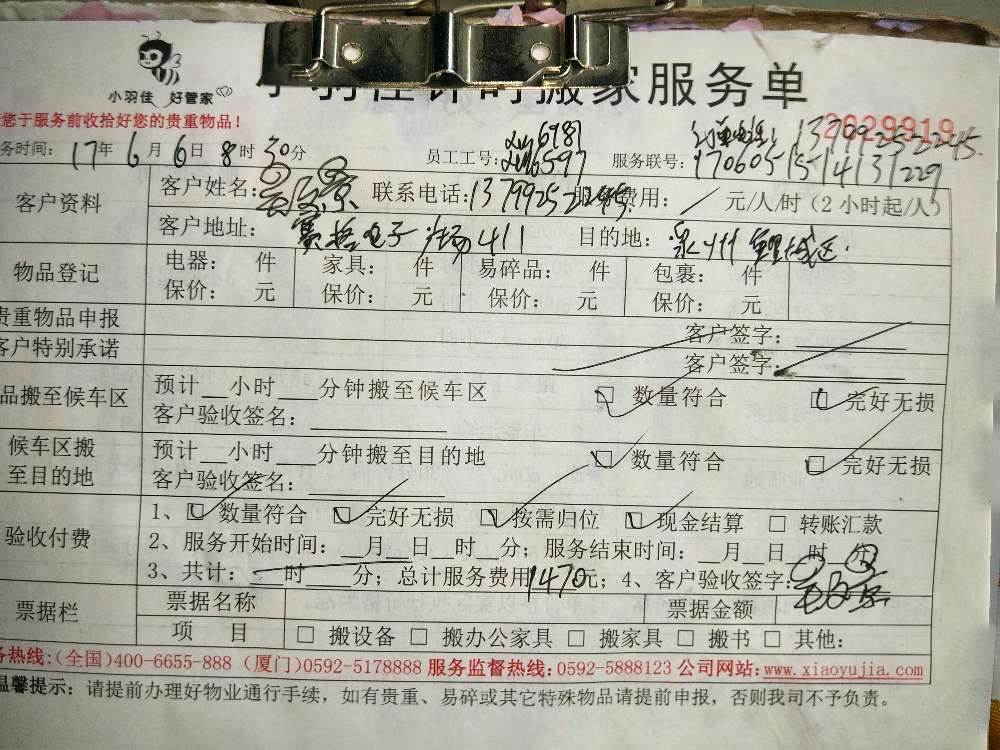 小羽佳 好管家
小羽佳计时搬家服务单
您于服务前收拾好您的贵重物品！
2029919
务时间： 17年6月6日8时30分 员工工号： 6981 6597 订单电话： 13799252245.
服务联号： 1706051514131229
客户资料 客户姓名： 联系电话：13799252245. 服务费用： 元/人/时（2小时起/人）
客户地址： 411 目的地： 泉州鲤城区.
物品登记 电器： 件 家具： 件 易碎品： 件 包裹： 件
保价： 元 保价： 元 保价： 元 保价： 元
贵重物品申报 客户签字：
客户特别承诺 客户签字：
品搬至候车区 预计 小时 分钟搬至候车区 数量符合 完好无损
客户验收签名：
候车区搬至目的地 预计 小时 分钟搬至目的地 数量符合 完好无损
客户验收签名：
验收付费 1、 数量符合 完好无损 按需归位 现金结算 转账汇款
2、服务开始时间： 月 日 时 分；服务结束时间： 月 日 时 分
3、共计： 时 分；总计服务费用1470元；4、客户验收签字：
票据栏 票据名称 票据金额
项 目 搬设备 搬办公家具 搬家具 搬书 其他：
务热线：(全国)400-6655-888 (厦门)0592-5178888 服务监督热线：0592-5888123 公司网站：www.xiaoyujia.com
温馨提示：请提前办理好物业通行手续，如有贵重、易碎或其它特殊物品请提前申报，否则我司不予负责。